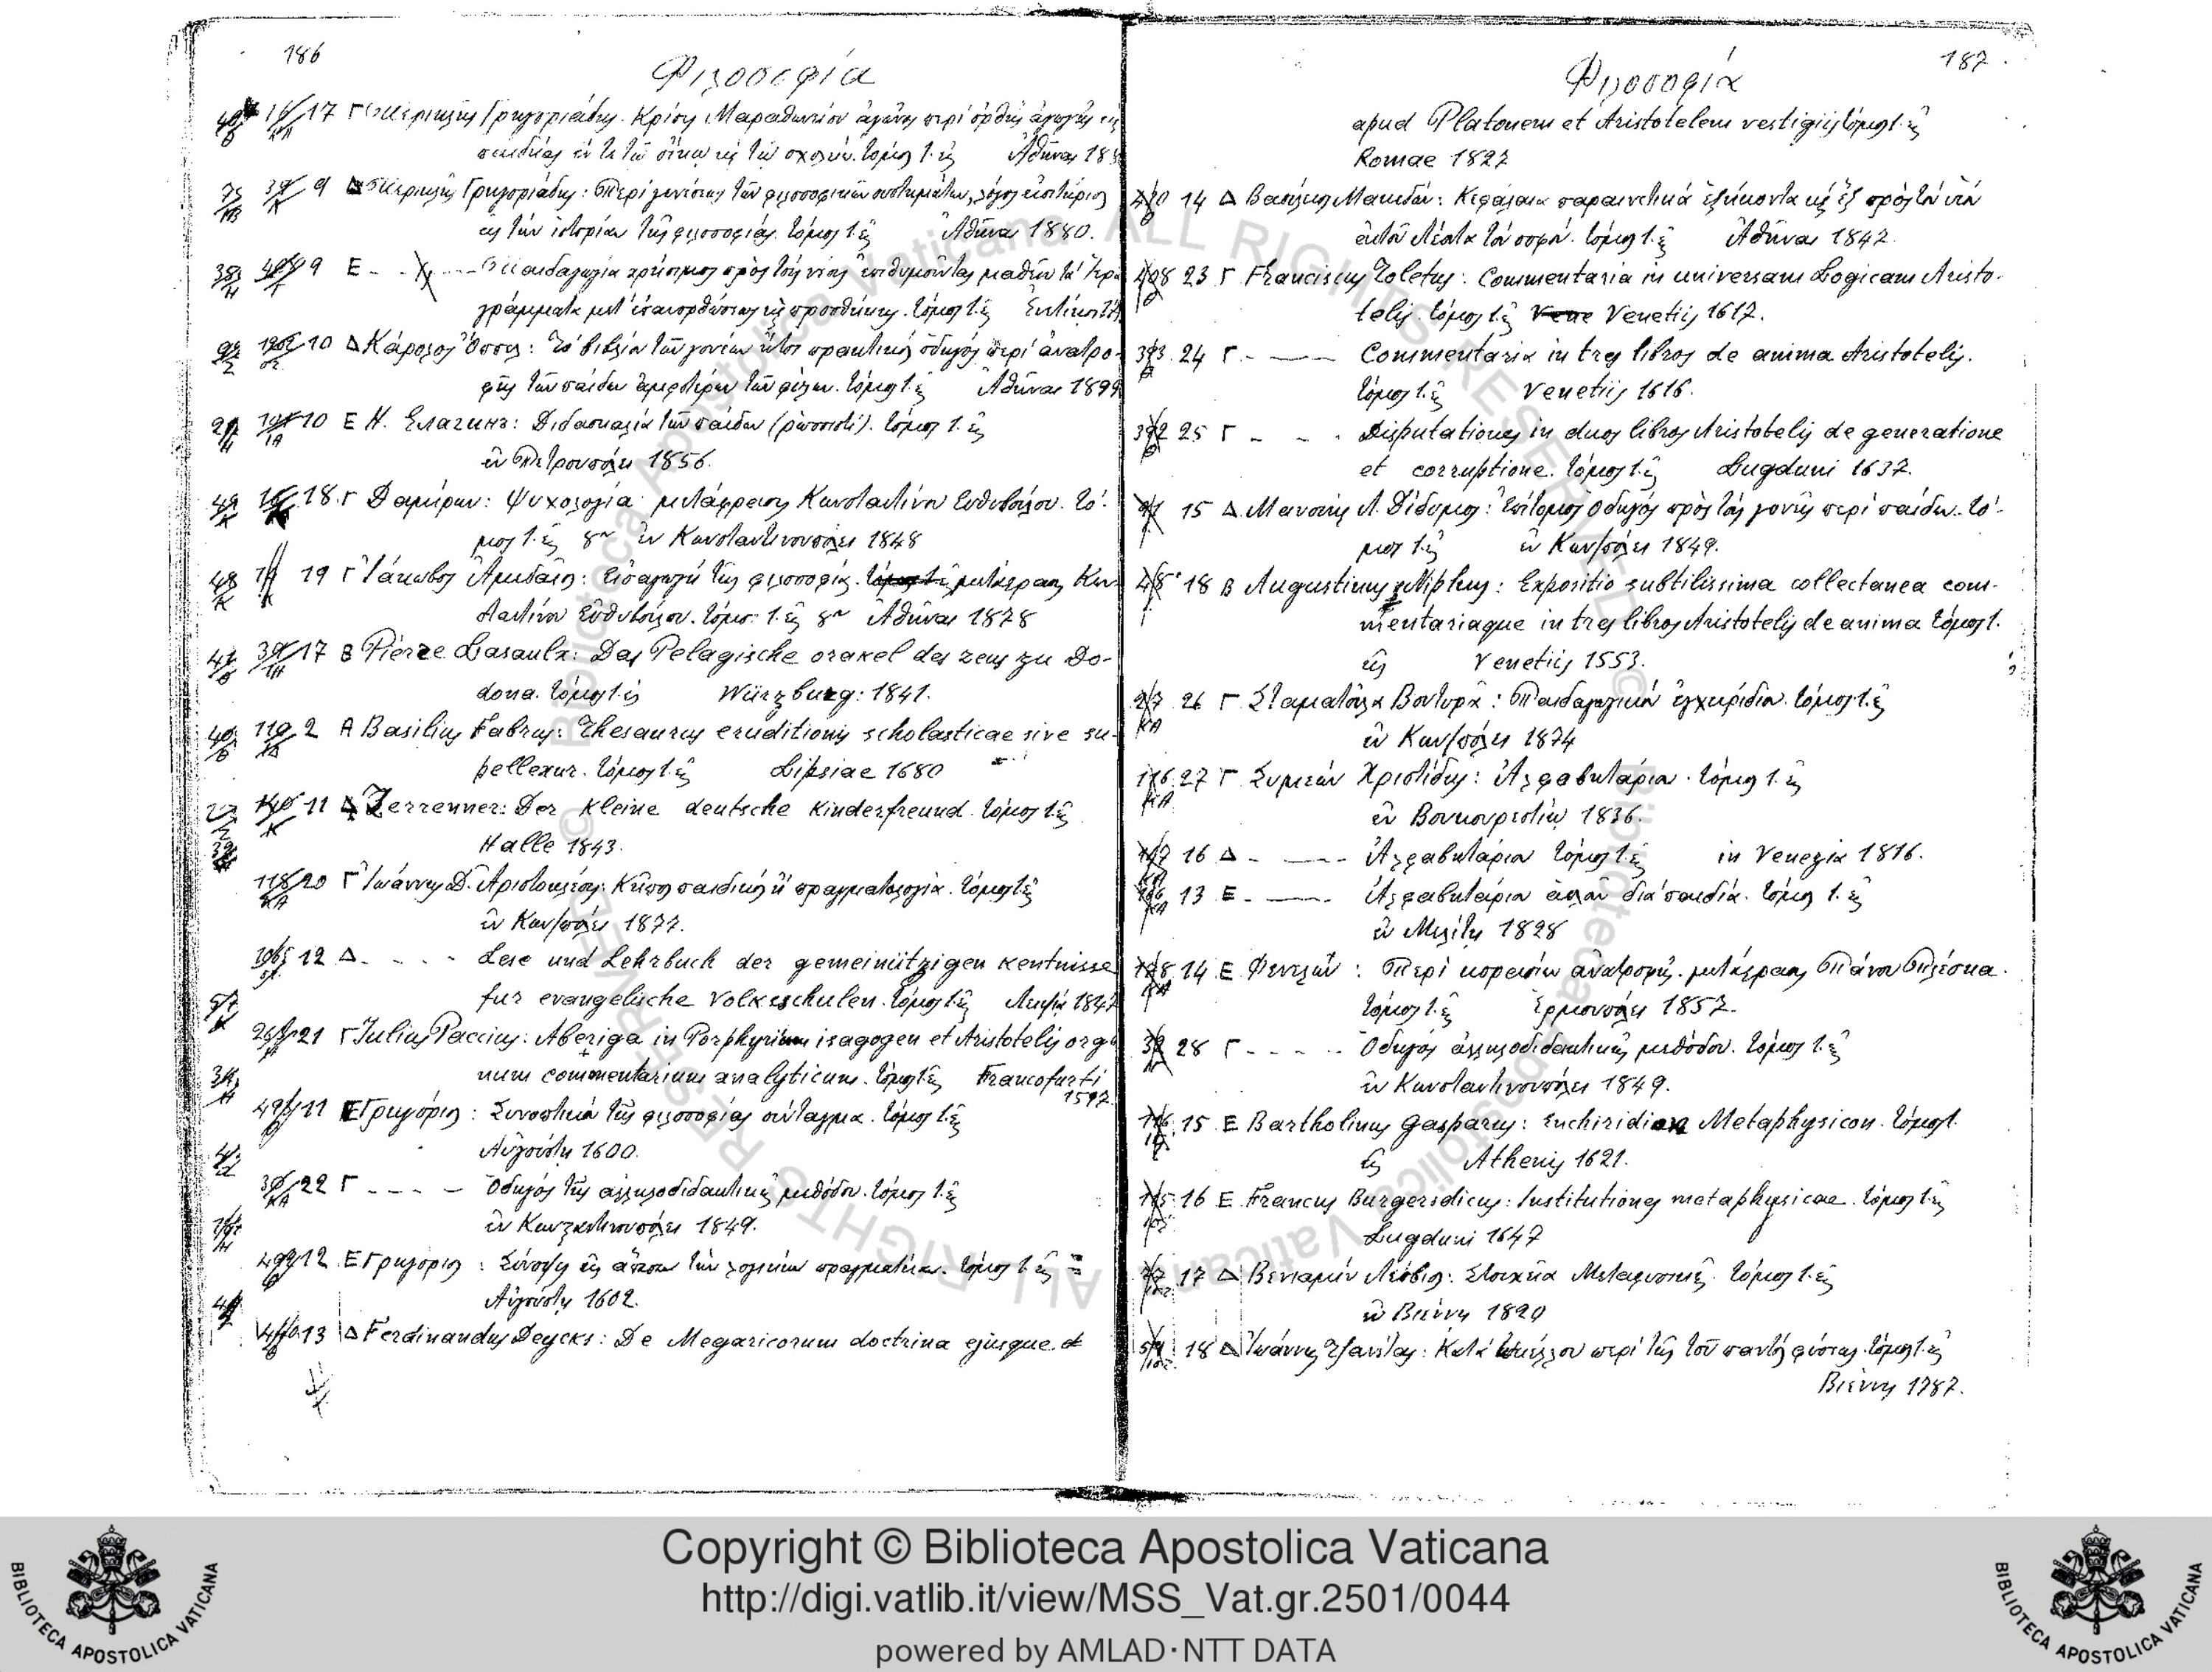 186
Φιλοσοφία
17 Γ Περικλῆς Γρηγοριάδης. Κρίσις Μαραθωνίου ἀγῶνος περὶ ὀρθῆς ἀγωγῆς τῆς
παιδείας ἐν τε τῷ οἴκῳ καὶ τῷ σχολείῳ. τόμος 1. εἷς Ἀθῆναι
9 Δ Περικλῆς Γρηγοριάδης: Περὶ γενέσεως τῶν φιλοσοφικῶν συστημάτων, λόγος εἰσιτήριος
εἰς τὴν ἱστορίαν τῆς φιλοσοφίας. τόμος 1. εἷς Ἀθῆναι 1880.
9 Ε - Παιδαγωγία χρήσιμος πρὸς τοὺς νέους ἐπιθυμοῦντας μαθεῖν τὰ ἱερὰ
γράμματα μετ' ἐπανορθώσεως καὶ προσθήκης. τόμος 1. εἷς Ἐνετίῃσι
10 Δ Κάρολος Ὄππελ: Τὸ βιβλίον τῶν γονέων ἤτοι πρακτικὸς ὁδηγὸς περὶ ἀνατρο-
φῆς τῶν παίδων ἀμφοτέρων τῶν φύλων. τόμος 1. εἷς Ἀθῆναι 1899
10 Ε Н. Елагинъ: Διδασκαλία τῶν παίδων (ῥωσσιστί). τόμος 1. εἷς
ἐν Πετρουπόλει 1856.
18. Γ Δαμίρων: Ψυχολογία μετάφρασις Κωνσταντίνου Εὐθυβούλου. τό-
μος 1. εἷς 8ον ἐν Κωνσταντινουπόλει 1848
19 Γ Ἰάκωβος : Εἰσαγωγὴ τῆς φιλοσοφίας. μετάφρασις Κων-
σταντίνου Εὐθυβούλου. τόμος 1. εἷς 8ον Ἀθῆναι 1878
17 Β Pierre Lasaulx: Das Pelagische orakel des zeus zu Do-
dona. τόμος 1. εἷς Würzburg: 1841.
2 Α Basilius Fabrus: Thesaurus eruditionis scholasticae sive su-
pellexur. τόμος 1. εἷς Lipsiae 1680
11 Δ Zerrenner: Der kleine deutsche Kinderfreund. τόμος 1. εἷς
Halle 1843.
20 Γ Ἰωάννης Δ. Ἀριστοκλέους: Κῆπος παιδικὸς ἢ πραγματολογία. τόμος 1. εἷς
ἐν Κων/πόλει 1877.
12 Δ. - - - Lese und Lehrbuch der gemeinützigen kentnisse
fur evangelische Volksschulen. τόμος 1. εἷς Λειψία 1847
21 Γ Iulius Paccius: Aberiga in Porphyrium isagogen et Aristotelis orga
num commentarium analyticum. τόμος 1. εἷς Francofurti
1597.
11 Ε Γρηγόριος: Συνοπτικὸν τῆς φιλοσοφίας σύνταγμα. τόμος 1. εἷς
Αὐγούστῃ 1600.
22 Γ - - - Ὁδηγὸς τῆς ἀλληλοδιδακτικῆς μεθόδου. τόμος 1. εἷς
ἐν Κωνσταντινουπόλει 1849.
12 Ε Γρηγόριος: Σύνοψις εἰς ἅπασαν τὴν λογικὴν πραγματείαν. τόμος 1. εἷς
Αὐγούστῃ 1602.
13 Δ Ferdinandus Deycks: De Megaricorum doctrina ejusque.
187
Φιλοσοφία
apud Platonem et Aristotelem vestigiis τόμος 1. εἷς
Romae 1827
14 Δ Βασίλειος Μακεδών: Κεφάλαια παραινετικὰ ἑξήκοντα καὶ ἓξ πρὸς τὸν υἱὸν
αὐτοῦ Λέοντα τὸν σοφόν. τόμος 1. εἷς Ἀθῆναι 1847
23 Γ Franciscus Toletus: Commentaria in universam Logicam Aristo-
telis. τόμος 1. εἷς Venetiis 1617.
24 Γ - — Commentaria in tres libros de anima Aristotelis.
τόμος 1. εἷς Venetiis 1616.
25 Γ - - - Disputationes in duos libros Aristotelis de generatione
et corruptione. τόμος 1. εἷς Lugduni 1637.
15 Δ Μανουὴλ Λ. Δίδυμος: Ἐπίτομος ὁδηγὸς πρὸς τοὺς γονεῖς περὶ παίδων. τό-
μος 1. εἷς ἐν Κων/πόλει 1849.
18 Β Augustinus Niphus: Expositio subtilissima collectanea com-
mentariaque in tres libros Aristotelis de anima τόμος 1.
εἷς Venetiis 1553.
26 Γ Σταματούλα Βουτυρᾶ: Παιδαγωγικὸν ἐγχειρίδιον. τόμος 1. εἷς
ἐν Κων/πόλει 1874
27 Γ Συμεὼν Χρηστίδης: Ἀλφαβητάριον. τόμος 1. εἷς
ἐν Βουκουρεστίῳ 1836.
16 Δ - — Ἀλφαβητάριον τόμος 1. εἷς in Venezia 1816.
13 Ε - — Ἀλφαβητάριον ἁπλοῦν διὰ παιδιά. τόμος 1. εἷς
ἐν Μελίτῃ 1828
14 Ε Φενελών: Περὶ κορασίων ἀνατροφῆς. μετάφρασις Πάνου Πλέσκα.
τόμος 1. εἷς Ἑρμουπόλει 1857.
28 Γ - - - Ὁδηγὸς ἀλληλοδιδακτικῆς μεθόδου. τόμος 1. εἷς
ἐν Κωνσταντινουπόλει 1849.
15 Ε Bartholinus Gasparus: Enchiridion Metaphysicon. τόμος 1.
εἷς Athenis 1621.
16 Ε Francus Burgersdicus: Institutiones metaphysicae. τόμος 1. εἷς
Lugduni 1647
17 Δ Βενιαμὶν Λέσβιος: Στοιχεῖα Μεταφυσικῆς. τόμος 1. εἷς
ἐν Βιέννῃ 1820
18 Δ Ἰωάννης : περὶ τῆς τοῦ παντὸς φύσεως. τόμος 1. εἷς
Βιέννῃ 1787.
© Biblioteca Apostolica Vaticana ALL RIGHTS RESERVED
Copyright © Biblioteca Apostolica Vaticana
http://digi.vatlib.it/view/MSS_Vat.gr.2501/0044
powered by AMLAD·NTT DATA
BIBLIOTECA APOSTOLICA VATICANA
BIBLIOTECA APOSTOLICA VATICANA